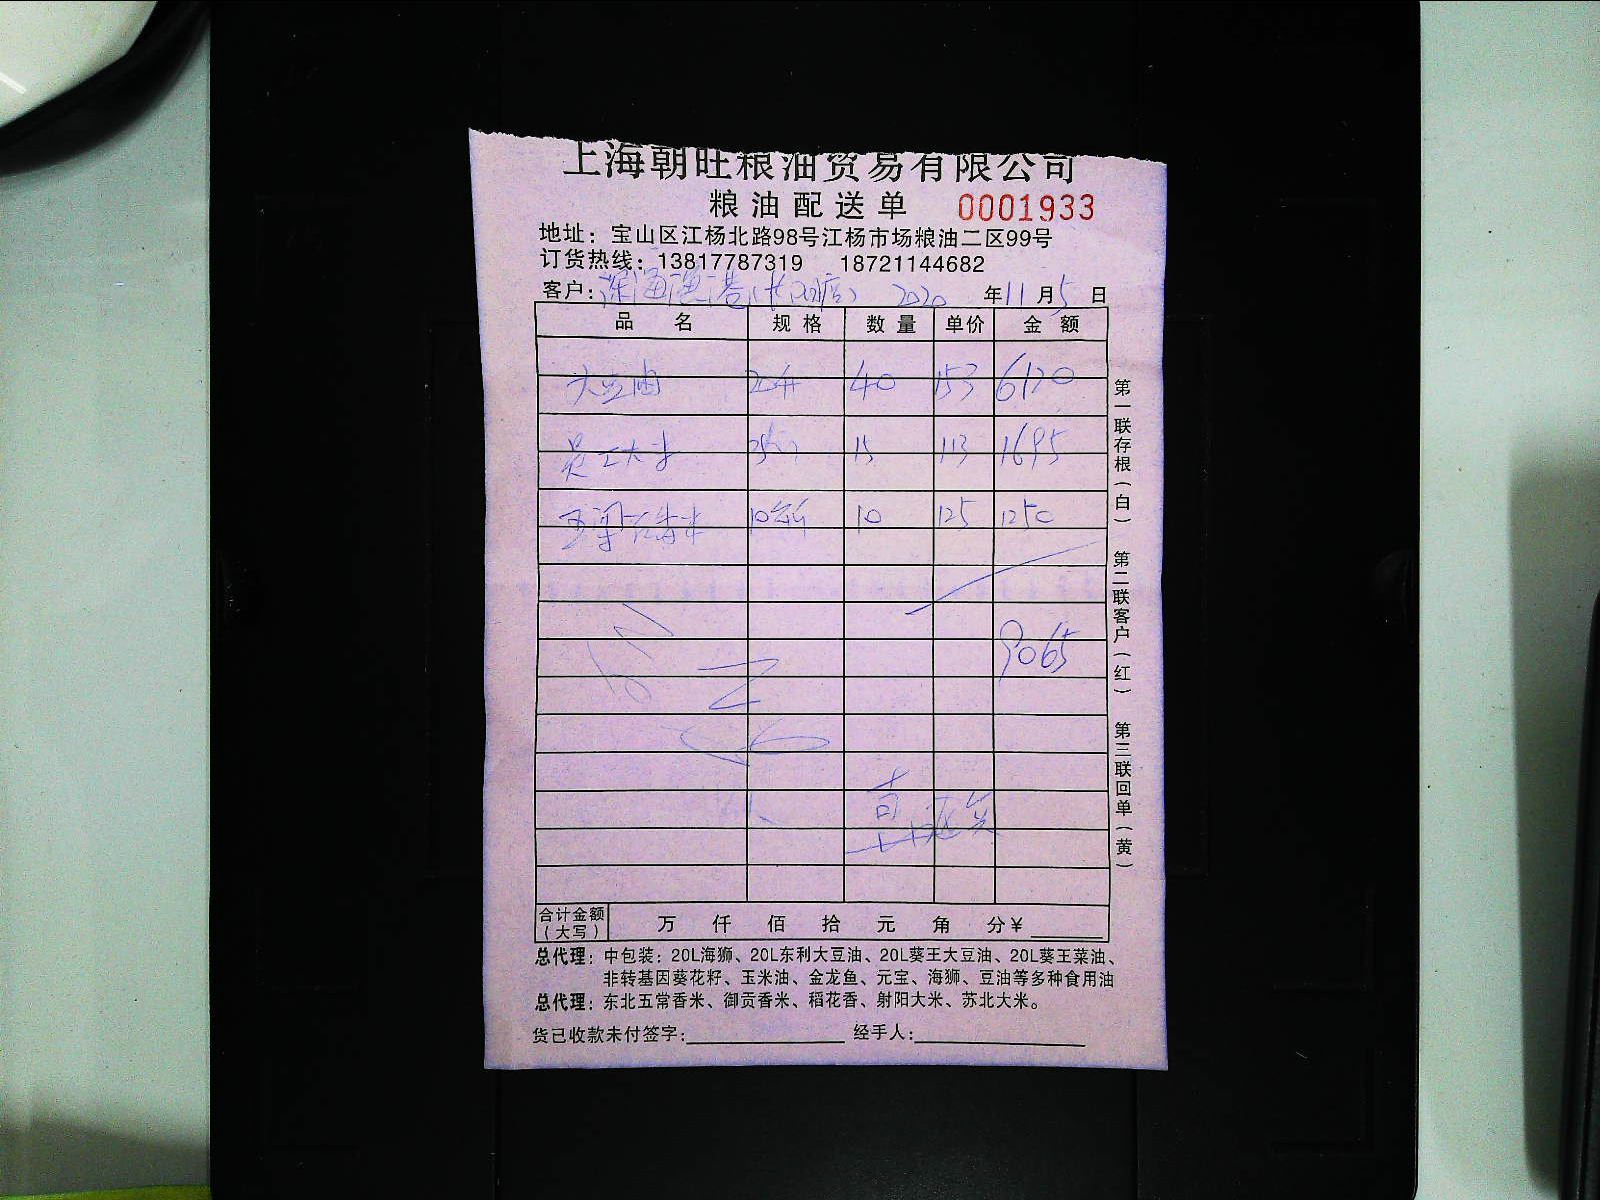 上海朝旺粮油贸易有限公司
粮油配送单 0001933
地址：宝山区江杨北路98号江杨市场粮油二区99号
订货热线：13817787319 18721144682
客户：深海渔港 2020 年 11 月 5 日
品 名 规 格 数 量 单价 金 额
大豆油 20升 40 153 6120
员工大米 15 113 1695
10 125 1250
9065
合计金额（大写） 万 仟 佰 拾 元 角 分￥
总代理：中包装：20L海狮、20L东利大豆油、20L葵王大豆油、20L葵王菜油、
非转基因葵花籽、玉米油、金龙鱼、元宝、海狮、豆油等多种食用油
总代理：东北五常香米、御贡香米、稻花香、射阳大米、苏北大米。
货已收款未付签字： 经手人：
第一联存根（白） 第二联客户（红） 第三联回单（黄）